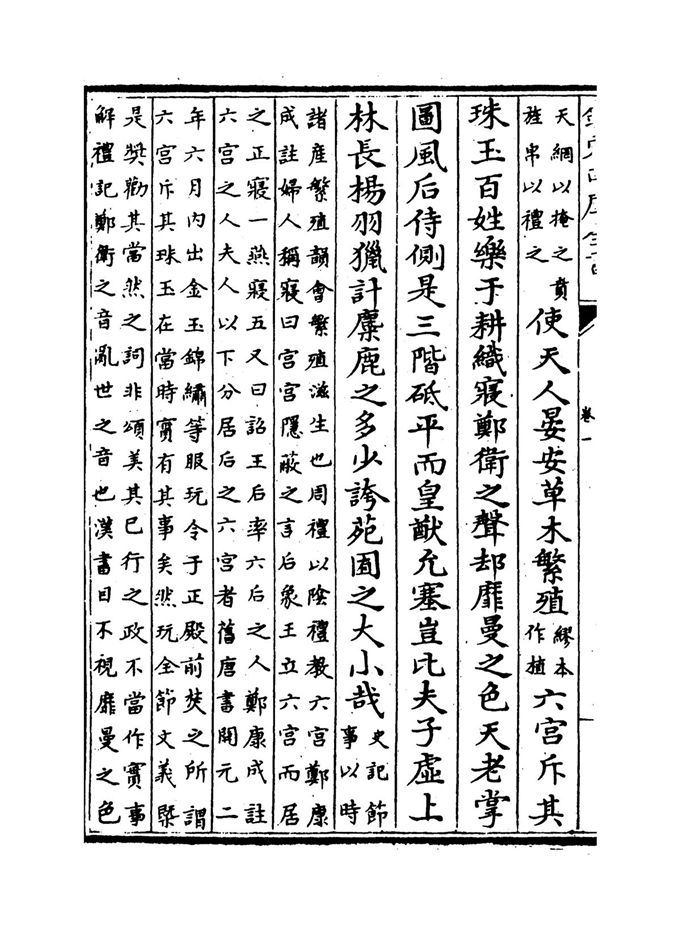 卷一
天綱以掩之賁
旌帛以禮之
使天人晏安草木繁殖
繆本
作植
六宮斥其
珠玉百姓樂于耕織寢鄭衛之聲却靡曼之色天老掌
圖風后侍側是三階砥平而皇猷允塞豈比夫子虛上
林長楊羽獵計麋鹿之多少誇苑囿之大小哉
史記節
事以時
諸產繁殖韻會繁殖滋生也周禮以陰禮教六宮鄭康
成註婦人稱寢曰宮宮隱蔽之言后象王立六宮而居
之正寢一燕寢五又曰詔王后率六后之人鄭康成註
六宮之人夫人以下分居后之六宮者舊唐書開元二
年六月內出金玉錦繡等服玩令于正殿前焚之所謂
六宮斥其珠玉在當時實有其事矣然玩全節文義槩
是奨勸其當然之詞非頌美其已行之政不當作實事
解禮記鄭衛之音亂世之音也漢書曰不視靡曼之色